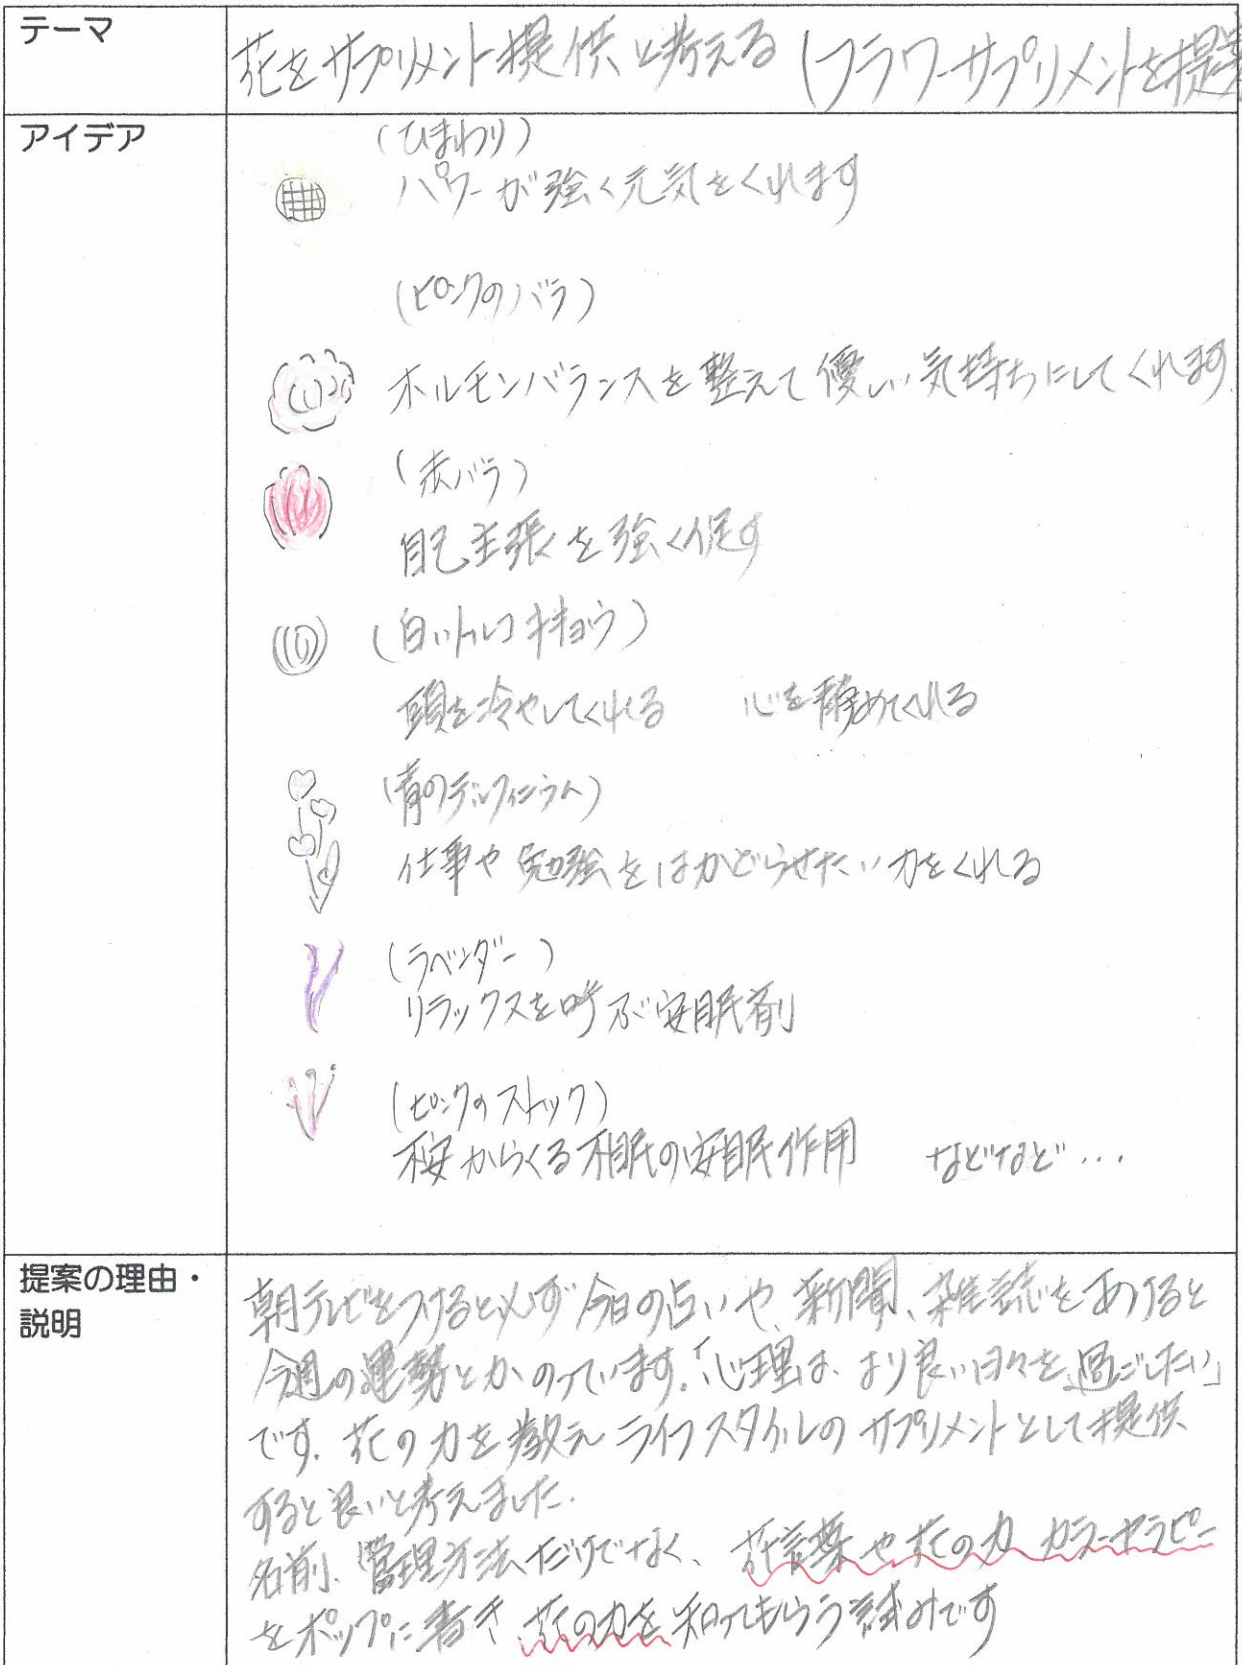 テーマ
花をサプリメント提供と考える (フラワーサプリメントを提案
アイデア
(ひまわり)
パワーが強く元気をくれます
(ピンクのバラ)
ホルモンバランスを整えて優しい気持ちにしてくれます.
(赤バラ)
自己主張を強く促す
(白いトルコキキョウ)
頭を冷やしてくれる 心を静めてくれる
(青のデルフィニウム)
仕事や勉強をはかどらせたい力をくれる
(ラベンダー)
リラックスを呼ぶ安眠剤
(ピンクのストック)
不安からくる不眠の安眠作用 などなど…
提案の理由・
説明
朝テレビをつけると必ず今日の占いや、新聞、雑誌をあけると
今週の運勢とかのっています.「心理は、より良い日々を過ごしたい」
です. 花の力を教え ライフスタイルのサプリメントとして提供
すると良いと考えました.
名前、管理方法だけでなく、花言葉や花の力 カラーセラピー
をポップに書き、花の力を知ってもらう試みです